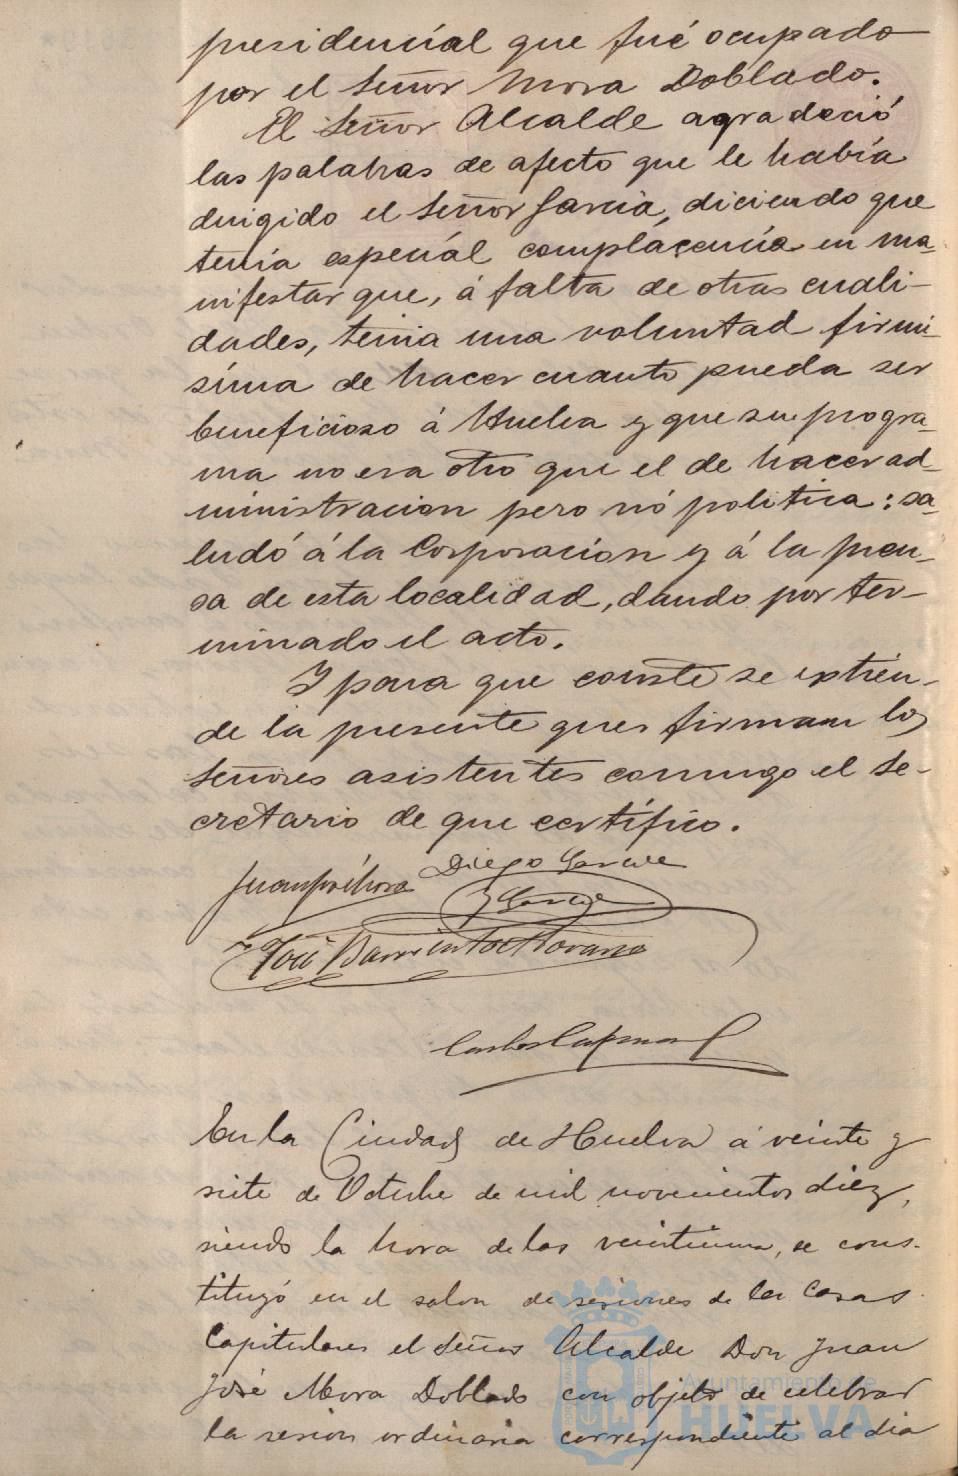 presidencial que fué ocupado
por el Señor Mora Doblado.
El Señor Alcalde agradeció
las palabras de afecto que le había
dirigido el Señor García, diciendo que
tenía especial complacencia en ma-
nifestar que, á falta de otras cuali-
dades, tenia una voluntad firmi-
sima de hacer cuanto pueda ser
beneficioso á Huelva y que su progra-
ma no era otro que el de hacer ad-
ministracion pero nó politica: sa-
ludó á la Corporacion y á la pren-
sa de esta localidad, dando por ter-
minado el acto.
Y para que conste se extien-
de la presente que firman los
Señores asistentes conmigo el Se-
cretario de que certífico.
Juan José Mora
Diego Garcia
y Garcia
José Barriento
Carlos
En la Ciudad de Huelva á veinte y
siete de Octubre de mil novecientos diez,
siendo la hora de las veintiuna, se cons-
tituyó en el salon de sesiones de las Casas
Capitulares el Señor Alcalde Don Juan
José Mora Doblado con objeto de celebrar
la sesion ordinaria correspondiente al dia
Ayuntamiento de
HUELVA